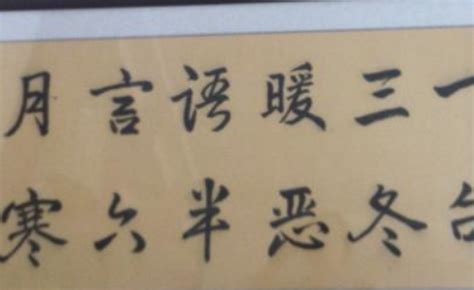 一
三冬
暖恶
语半
言六
月寒